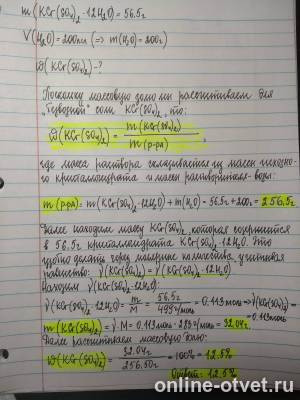 m(KCr(SO₄)₂·12H₂O)=56,5г
V(H₂O)=200мл (=> m(H₂O)=200г)
ω(KCr(SO₄)₂)-?
Поскольку массовую долю мы рассчитываем для
"безводной" соли KCr(SO₄)₂, то:
ω(KCr(SO₄)₂) = m(KCr(SO₄)₂) / m(р-ра),
где масса раствора складывается из массы исходно-
го кристаллогидрата и массы растворителя-воды:
m(р-ра) = m(KCr(SO₄)₂·12H₂O) + m(H₂O) = 56,5г+200г = 256,5г
Далее находим массу KCr(SO₄)₂, которая содержится
в 56,5г кристаллогидрата KCr(SO₄)₂·12H₂O. Это
удобно делать через молярные количества, учитывая
равенство: ν(KCr(SO₄)₂) = ν(KCr(SO₄)₂·12H₂O)
Находим ν(KCr(SO₄)₂·12H₂O)
ν(KCr(SO₄)₂·12H₂O) = m/M = 56,5г / 499г/моль = 0.113моль => ν(KCr(SO₄)₂) = 0.113моль
m(KCr(SO₄)₂) = ν·M = 0.113моль·283г/моль = 32.04г
Далее рассчитаем массовую долю:
ω(KCr(SO₄)₂) = 32.04г / 256.50г · 100% = 12.5%
Ответ: 12.5%
online-otvet.ru